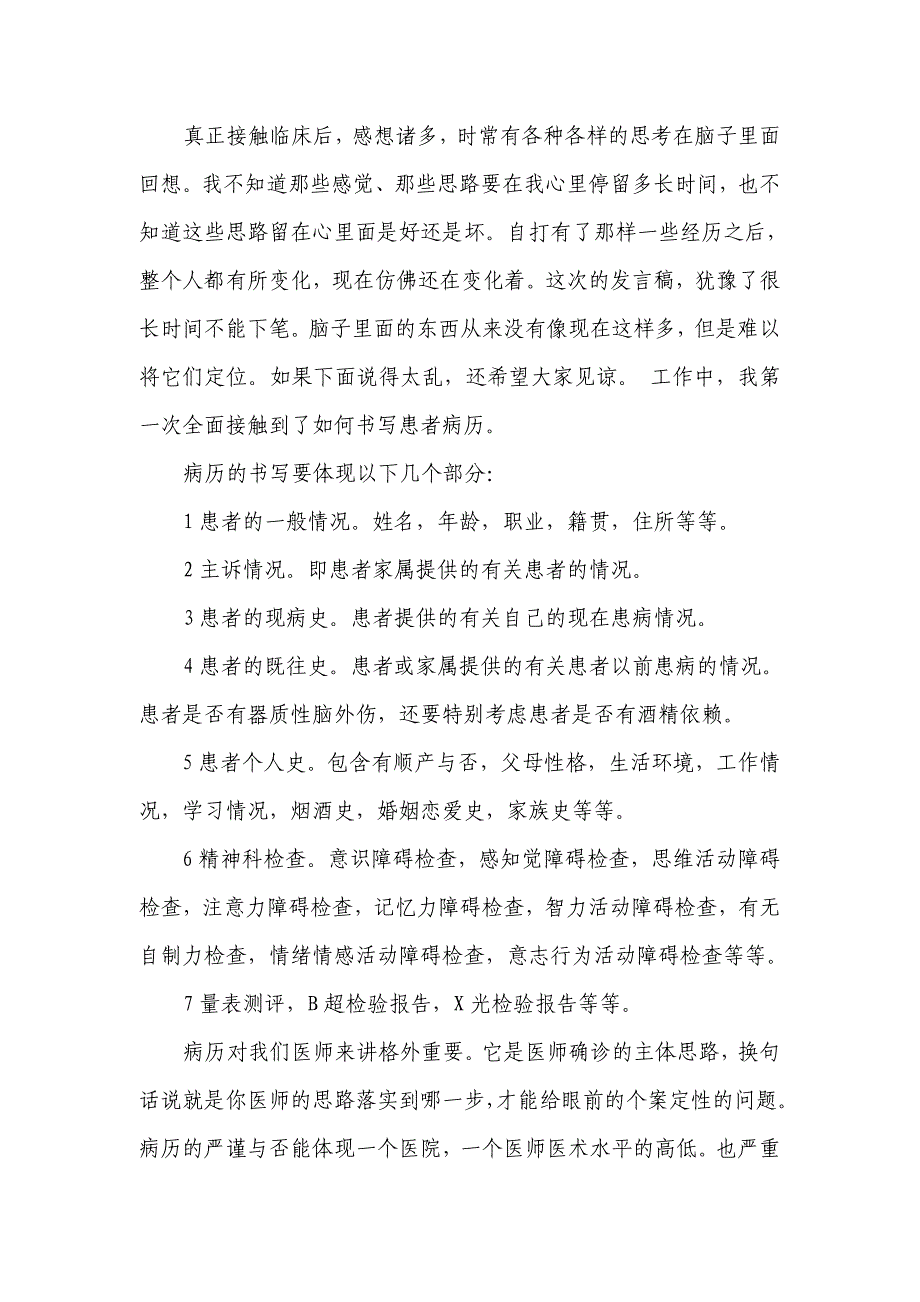 真正接触临床后，感想诸多，时常有各种各样的思考在脑子里面
回想。我不知道那些感觉、那些思路要在我心里停留多长时间，也不
知道这些思路留在心里面是好还是坏。自打有了那样一些经历之后，
整个人都有所变化，现在仿佛还在变化着。这次的发言稿，犹豫了很
长时间不能下笔。脑子里面的东西从来没有像现在这样多，但是难以
将它们定位。如果下面说得太乱，还希望大家见谅。 工作中，我第
一次全面接触到了如何书写患者病历。
病历的书写要体现以下几个部分：
1 患者的一般情况。姓名，年龄，职业，籍贯，住所等等。
2 主诉情况。即患者家属提供的有关患者的情况。
3 患者的现病史。患者提供的有关自己的现在患病情况。
4 患者的既往史。患者或家属提供的有关患者以前患病的情况。
患者是否有器质性脑外伤，还要特别考虑患者是否有酒精依赖。
5 患者个人史。包含有顺产与否，父母性格，生活环境，工作情
况，学习情况，烟酒史，婚姻恋爱史，家族史等等。
6 精神科检查。意识障碍检查，感知觉障碍检查，思维活动障碍
检查，注意力障碍检查，记忆力障碍检查，智力活动障碍检查，有无
自制力检查，情绪情感活动障碍检查，意志行为活动障碍检查等等。
7 量表测评，B 超检验报告，X 光检验报告等等。
病历对我们医师来讲格外重要。它是医师确诊的主体思路，换句
话说就是你医师的思路落实到哪一步，才能给眼前的个案定性的问题。
病历的严谨与否能体现一个医院，一个医师医术水平的高低。也严重